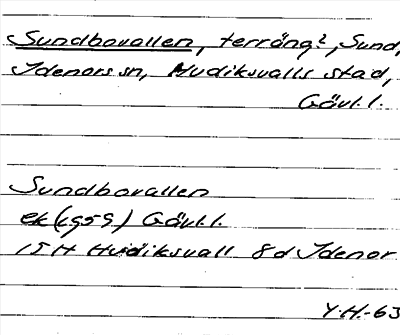 Sundbovallen, terräng?, Sund,
Idenors sn, Hudiksvalls stad,
Gävl.l.
Sundbovallen
ek (1959) Gävl.l.
15 H Hudiksvall 8 d Idenor
Y.H.-63